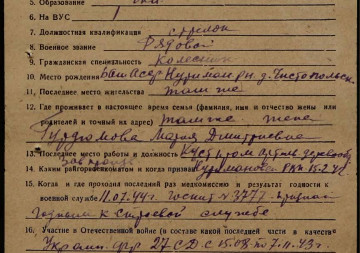 5. Образование
6. На ВУС
7. Должностная квалификация стрелок
8. Военное звание Рядовой
9. Гражданская специальность Колесник
10. Место рождения БашАССР Нуриман рн. д. Чистополь
11. Последнее место жительства там же
12. Где проживает в настоящее время семья (фамилия, имя и отчество жены или
родителей и точный их адрес) там же жена
Мария Дмитриевна
13. Последнее место работы и должность
14. Каким райгорвоенкоматом и когда призван РВК
15. Когда и где проходил последний раз медкомиссию и результат годности к
военной службе 11.07.44 г. Госпит. 3777 признан
годным к строевой службе
16. Участие в Отечественной войне (в составе какой последней части и в качестве
27 СД с 15.08 по 7.11.43 г.